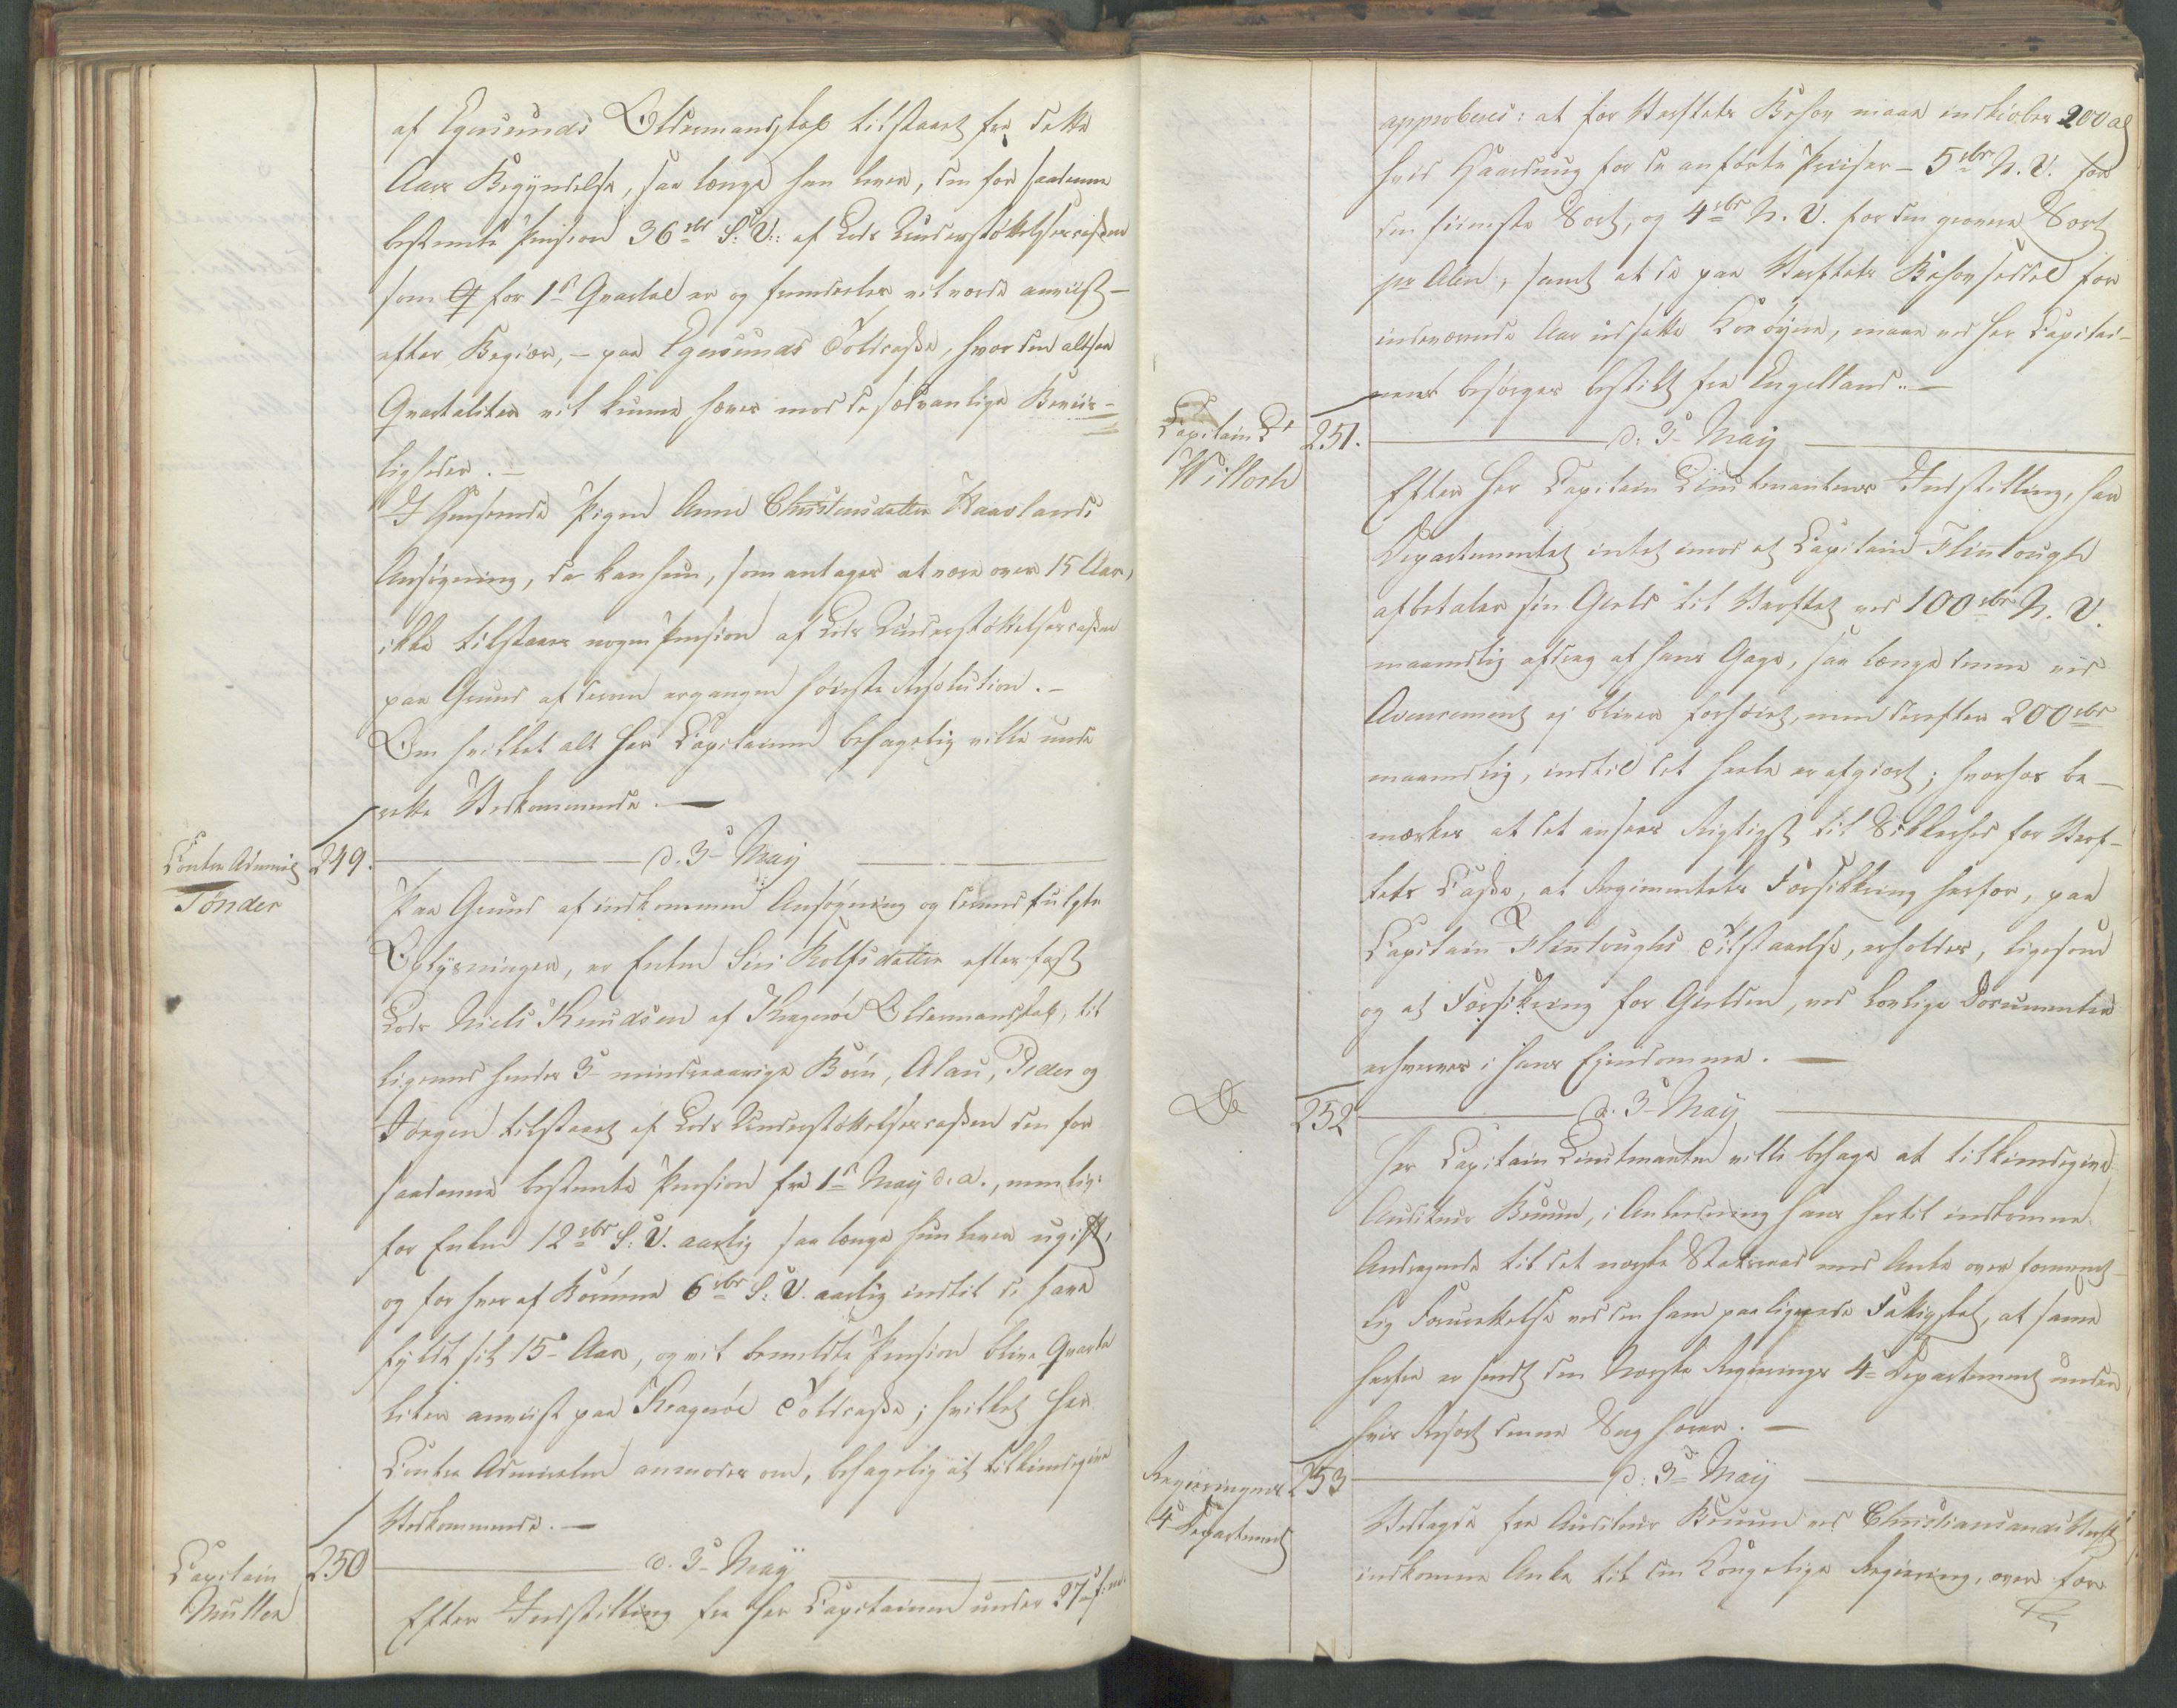 af Egersunds Oldermandskab tilstaaet fra dette
Aars Begyndelse, saa længe han lever, den for saadanne
bestemte Pension 36 sbr S: V: af Lods Understøttelsescassen
som for 1st Qvartal er og fremdeles vil vorde anviist -
efter Begiær, - paa Egersunds Toldcasse, hvor den altsaa
Qvartaliter vil kunne hæves mod de sædvanlige Beviis-
ligheder. -
I Henseende Pigen Anne Christensdatter Haavlands
Ansøgning, da kan hun, som antages at være over 15 Aar,
ikke tilstaaes nogen Pension af Lods Understøttelsescassen
paa Grund af derom ergangen høieste Resolution. -
Om hvilket alt Her Capitainen behagelig ville under
rette Vedkommende. -
Contra Admiral
Tönder
249.
d. 3 - May
Paa Grund af indkommen Ansøgning og dermed fulgte
Oplysninger, er Enken Siri Rolfsdatter efter fast
Lods Niels Knudsen af Kragerøe Oldermandskab, til
ligemed hendes 3 - mindreaarige Børn, Alau, Peder og
Jörgen tilstaaet af Lods Understøttelsescassen den for
saadanne bestemte Pension fra 1st May d. a., nemlig:
for Enken 12 sbr S: V. aarlig saa længe hun lever ugift,
og for hver af Børnene 6 sbr S: V. aarlig indtil de have
fyldt sit 15 - Aar, og vil bemeldte Pension blive Qvarta
liter anviist paa Kragerøe Toldcasse; hvilket Her
Contra Admiralen anmodes om, behagelig at tilkiendegive
Vedkommende. -
Capitain
Müller
250
d. 3 - May
Efter Indstilling fra Her Capitainen under 27 f: m.
approberes: at for Verftets Behov maae indkiøbes 200 al
hvid Haardug for de anførte Priiser - 5 sbr N. V. for
den fiineste Sort, og 4 sbr N. V. for den grovere Sort
pr Alen, samt at de paa Verftets Behovseddel for
indeværende Aar udsatte Koeøyne, maae ved Her Capitai-
nens besørges bestilt fra Engelland. -
Capitain Lt
Willoch
251.
d: 3 - May
Efter Her Capitain Lieutenantens Indstilling, har
Departementet intet imod at Capitain Flintough
afbetaler sin Gield til Verftet ved 100 sbr N. V.
maanedlig afdrag af hans Gage, saa længe denne ved
Avancement ej bliver forhøiet, men derefter 200 sbr
maanedlig, indtil det heele er afgiort; hvorhos be-
mærkes at det ansees Rigtigst til Sikkerhed for Verf-
tets Casse, at Regimentets Forsikkring herfor, paa
Capitain Flintoughs Tilstaaelse, erholdes, ligesom
og at Forsikring for Gielden, ved lovlige Documenter
erhverves i hans Ejendomme. -
Do
252
d. 3 - May
Her Capitain Lieutenanten ville behage at tilkiendegive
Auditeur Bruun, i Anledning hans hertil indkomne
Andragende til det norske Statsraad med Anke over formeent-
lig Fornærmelse ved den ham paaliggende Faltigskat, at samme
herfra er sendt den Norske Regierings 4 - Departement under
hvis Resort denne Sag hører. -
Regieringens
4 Departement
253
d: 3 - May
Vedlagde fra Auditeur Bruun ved Christiansands Verft
indkomne Anke til den Kongelige Regiering, over for